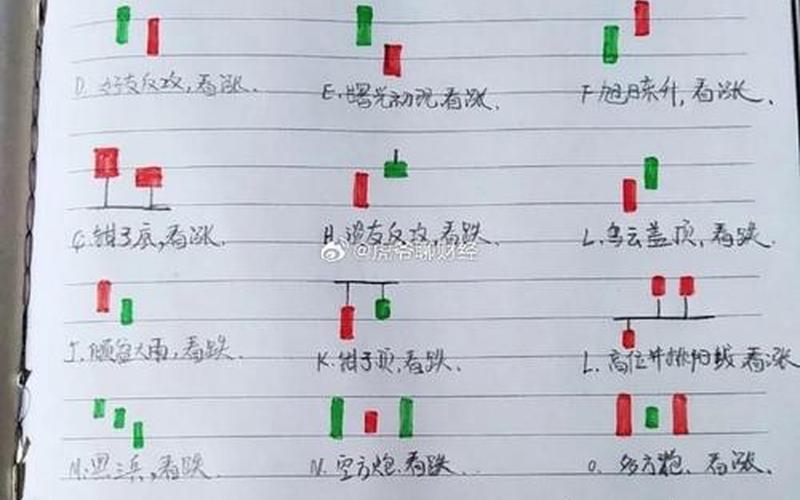 D. 好友反攻,看涨.
E. 曙光初现,看涨.
F 旭日东升,看涨.
G.钳子底,看涨.
H.淡友反攻,看跌.
L.乌云盖顶,看跌.
@虎爷聊财经
J.倾盆大雨,看跌.
K.钳子顶,看跌.
L.高位并排阳线 看涨
M.黑三兵,看跌.
N.空方炮.看跌..
O. 多方炮. 看涨.